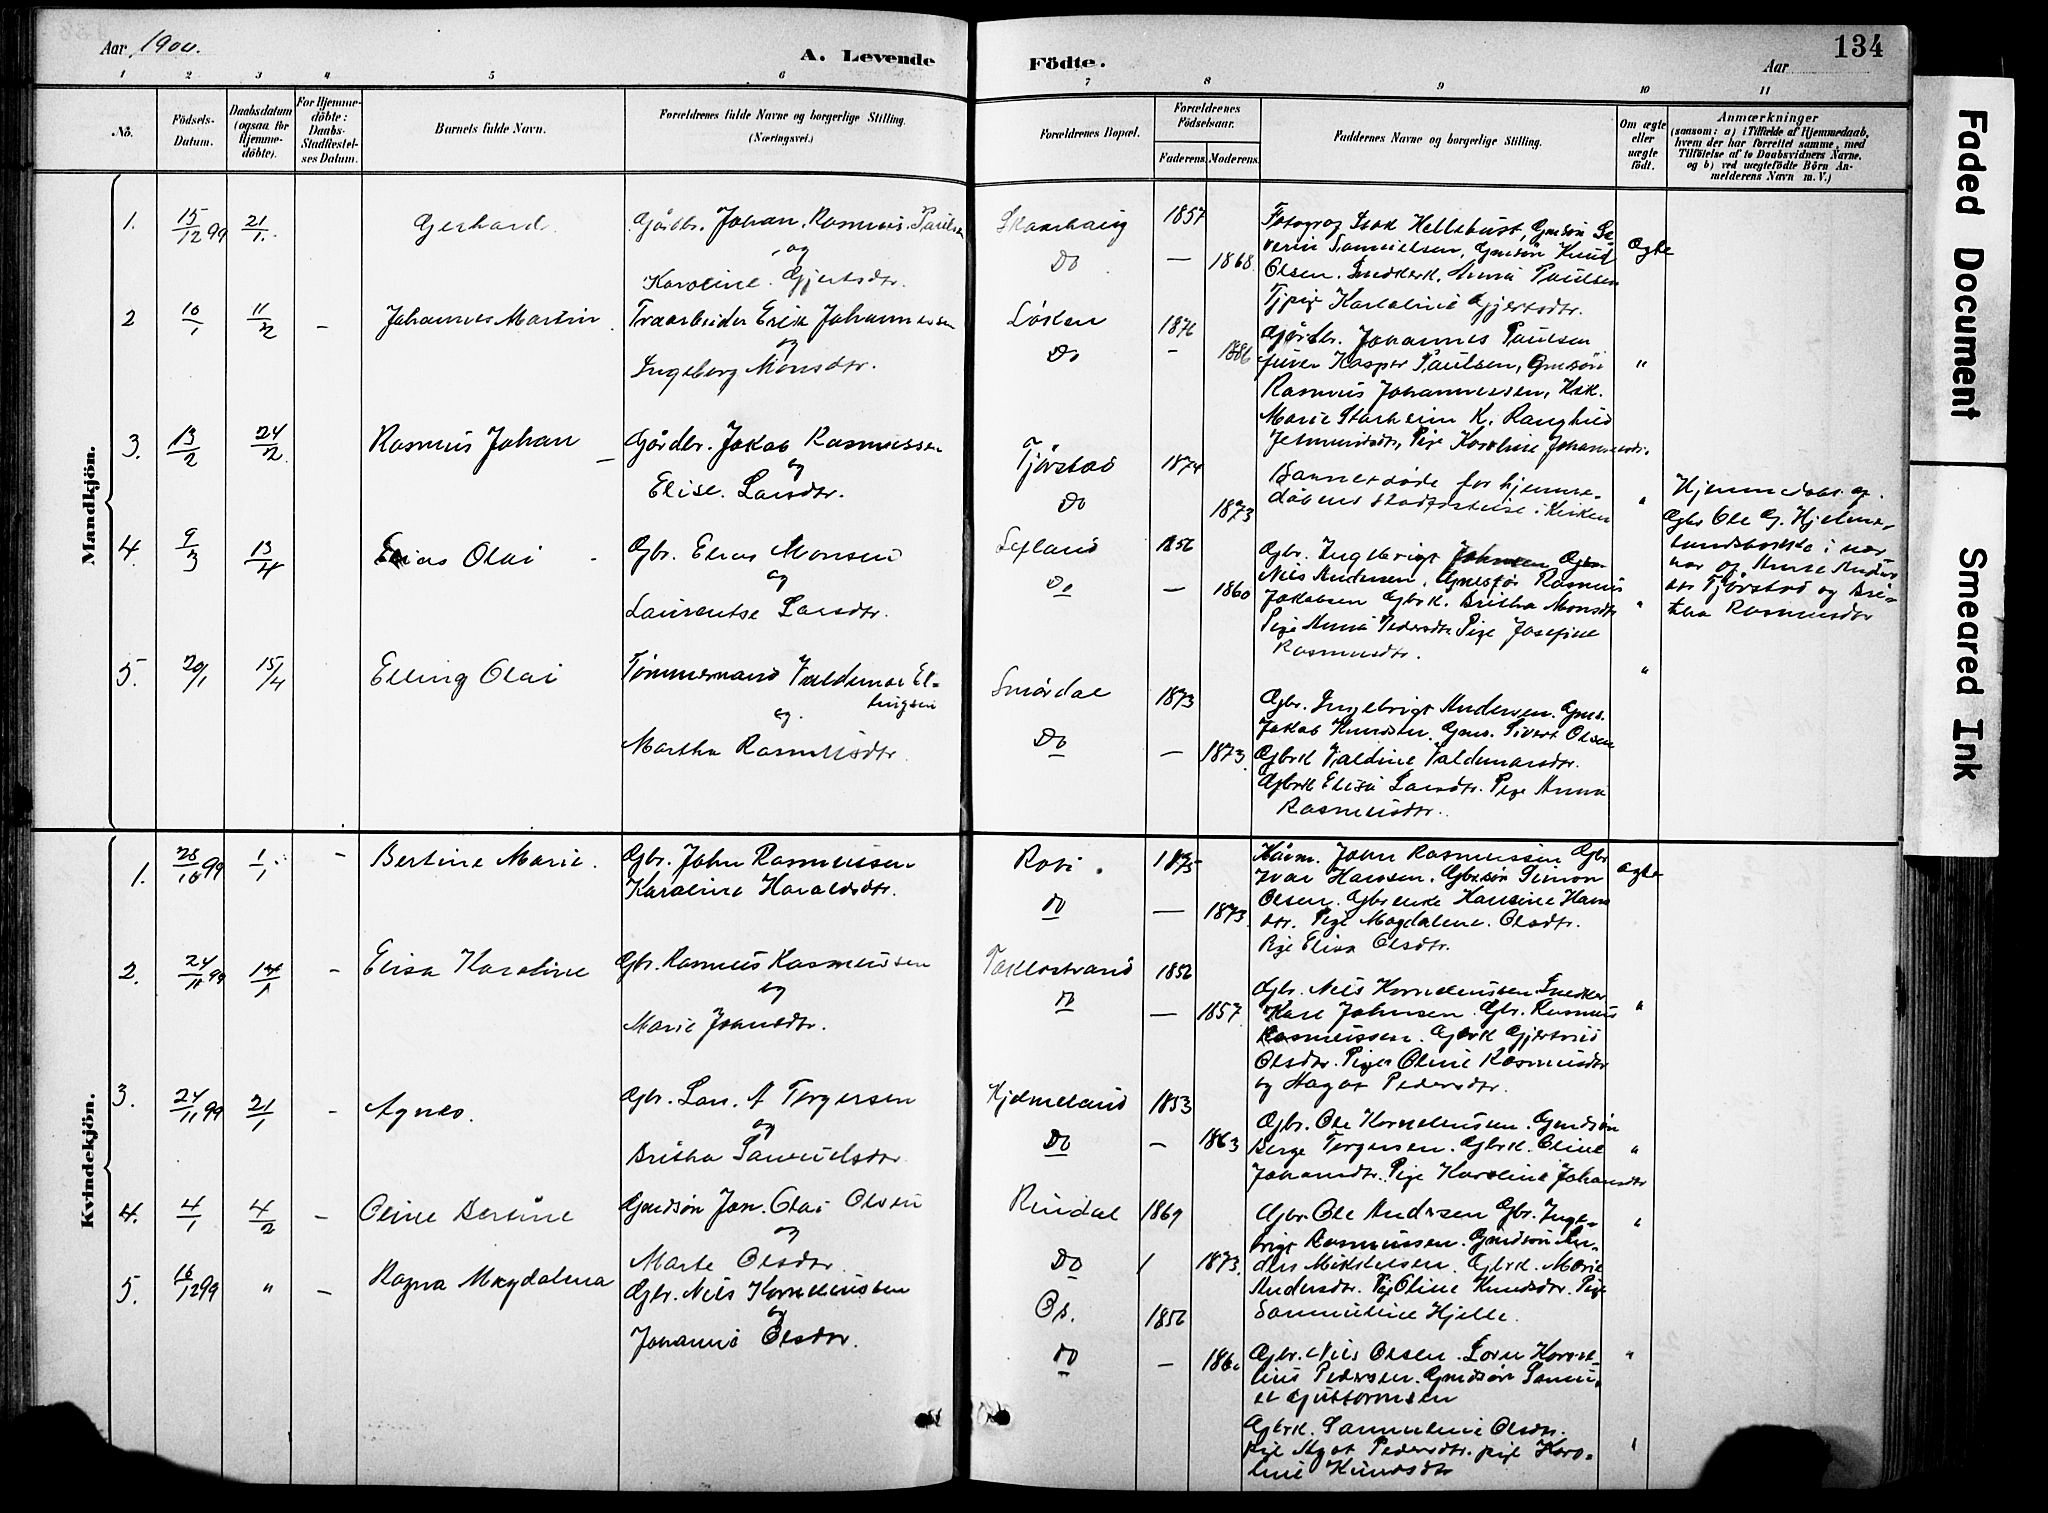 Aar 1900.
A. Levende
Födte.
Aar
134
1 2 3 4 5 6 7 8 9 10 11
No.
Födsels-
Datum.
Daabsdatum
(ogsaa for
Hjemme-
döbte).
For Hjemme-
döbte:
Daabs-
Stadfæstel-
ses Datum.
Barnets fulde Navn.
Forældrenes fulde Navne og borgerlige Stilling.
(Næringsvei.)
Forældrenes Bopæl.
Forældrenes
Födselsaar.
Faderens. Moderens.
Faddernes Navne og borgerlige Stilling.
Om ægte
eller
uægte
födt.
Anmærkninger
(saasom: a) i Tilfælde af Hjemmedaab,
hvem der har forrettet samme, med
Tilföielse af to Daabsvidners Navne.
og b) ved uægtefödte Börn An-
melderens Navn m. V.)
Mandkjön.
1. 15/12 99 21/1. Gerhard Gårdbr. Johan Rasmus Paulsen
og
Karoline Gjertsdtr.
Skaarhaug 1857
Do — 1868
Fotograf Isak Hellebust, Gmdsön Se-
verin Samuelsen, Gmdsön Knud
Olsen. Snedkerk. Anna Paulsen
Pige Karoline Gjertsdtr.
Ægte
2 10/1 11/2 – Johannes Martin Træarbeider Erik Johannessen
og
Ingeborg Monsdtr.
Løken 1876
Do — 1886
Gårdbr. Johannes Paulsen
Kasper Paulsen, Gmdsön
Rasmus Johannessen, Kak.
Marie Starheim K. Ranghild
Jetmundsdtr, Pige Karoline Johannesdtr.
"
3. 13/2 24/2 Rasmus Johan – Gårdbr. Jakob Rasmussen
og
Elise Larsdtr.
Tjørstad 1874
Do 1873
Barnet døde før hjemme-
dåbens stadfæstelse i Kirken
"
Hjemmedøbt af
Gbr Ole G. Hjelme-
i nær-
vær af Anne Anders-
dtr Tjørstad og Bri-
tha Rasmusdtr
4. 9/3 13/4 Elias Olai Gbr. Elias Monsen
og
Laurentse Larsdtr.
Leland 1856
Do — 1860
Gbr. Ingebrigt Johnsen Gbr
Nils Andersen, Rasmus
Jakobsen Gbrk. Britha Monsdtr
Pige Anna Pedersdtr. Pige Josefine
Rasmusdtr.
"
5. 20/1 15/4 Elling Olai Tømmermand Valdemar El-
lingsen
og.
Martha Rasmusdtr
Smördal 1873
Do — 1873
Gbr. Ingebrigt Andersen. Gmds.
Jakob Knudsen, Gmds. Sivert Olsen
Gbrk Valdine Valdemarsdtr.
Gbrk Elisa Larsdtr. Pige Anna
Rasmusdtr.
"
Kvindekjön.
1. 28/10 99 1/1 – Bertine Marie. Gbr. John Rasmussen
Karoline Haraldsdtr.
Robi. 1875
Do — 1873
Kårm. John Rasmussen Gbr
Ivar Hansen. Gbrsön Simon
Olsen. Gbrenke Hansine Hans
dtr. Pige Magdalene Olsdtr.
Pige Elisa Olsdtr.
ægte
2. 24/11 99 14/1 – Elisa Karoline Gbr. Rasmus Rasmussen
og
Marie Johnsdtr.
Taklostrand 1856
Do — 1857
Gbr. Nils Korneliussen Snedker
Karl Johnsen. Gbr. Rasmus
Rasmussen. Gbrk Gjertrud
Olsdtr. Pige Oline Rasmusdtr
og Hagot Pedersdtr.
"
3. 24/11 99 21/1 – Agnes. Gbr. Lars A Torgersen
og
Britha Samuelsdtr
Hjelmeland 1853
Do — 1863
Gbr. Ole Korneliussen. Gmdsön
Berge Torgersen. Gbrk. Oline
Johansdtr. Pige Karoline Johansdtr
"
4. 4/1 4/2 – Oline Bertine Gmdsön Jon Olai Olsen
og
Marte Olsdtr
Rindal 1869
Do / 1873.
Gbr. Ole Andersen Gbr. Inge-
brigt Rasmussen. Gmdsön An-
ders Mikkelsen. Gbrk. Marie
Andersdtr. Pige Oline Knudsdtr. Pige
Samueline Hjelle.
"
5. 16/12 99 " – Ragna Magdalena Gbr. Nils Korneliussen
og
Johanne Olsdtr.
Os. 1856
Do — 186
Gbr. Nils Olsen. Korne-
lius Pedersen. Gmdsön Samu-
el Guttormsen
Gbrk. Samueline Olsdtr.
pige Agot Pedersdtr. pige Karo-
line Knudsdtr
"
Faded Document
Smeared Ink